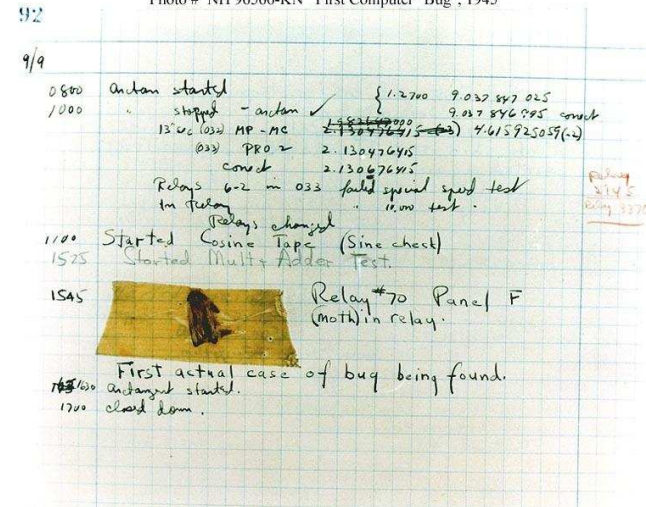 Photo # NH 96566-KN "First Computer "Bug", 1945
92
9/9
0800 arctan started { 1.2700 9.037 847 025
1000 " stopped - arctan ✓ 9.037 846 995 correct
13" sec (032) MP - MC 2.130476415 (-3) 4.615925059(-2)
(033) PRO 2 2.130476415
correct 2.130676415
Relays 6-2 in 033 failed special speed test
In Relay " 10.000 test .
Relay
2145
Relay 3370
Relays changed
1100 Started Cosine Tape (Sine check)
1525 Started Mult+ Adder Test.
1545 Relay #70 Panel F
(moth) in relay.
First actual case of bug being found.
1630 arctangent started.
1700 closed down .